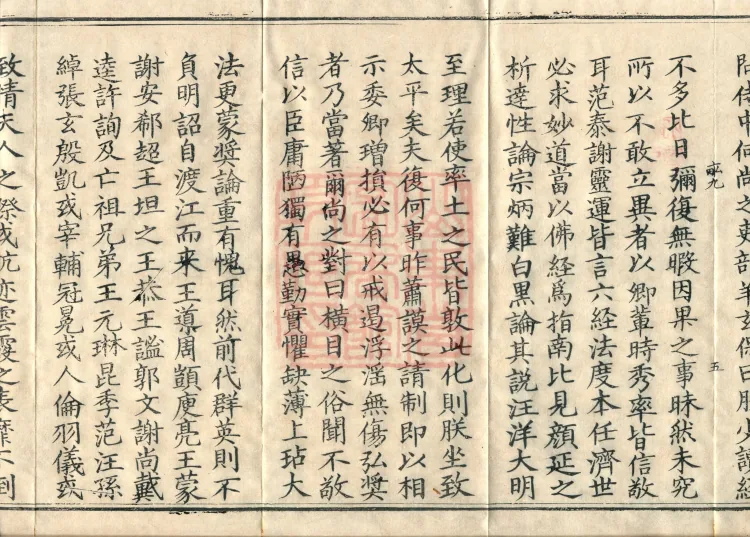 問侍中何尚之吏部羊玄保曰朕少讀経
不多比日彌復無暇因果之事昧然未究
所以不敢立異者以卿輩時秀率皆信敬
耳范泰謝靈運皆言六経法度本任濟世
必求妙道當以佛経爲指南比見顔延之
析達性論宗炳難白黒論其説汪洋大明
五
至理若使率土之民皆敦此化則朕坐致
太平矣夫復何事昨蕭謨之請制即以相
示委卿增損必有以戒遏浮滛無傷弘奨
者乃當著爾尚之對曰横目之俗聞不敬
信以臣庸陋獨有愚勤實懼缺薄上玷大
法更蒙奨論重有愧耳然前代群英則不
負明詔自渡江而来王導周顗庾亮王蒙
謝安郗超王坦之王恭王謐郭文謝尚戴
逵許詢及亡祖兄弟王元琳昆季范汪孫
綽張玄殷凱或宰輔冠冕或人倫羽儀或
致情天人之際或抗迹雲霞之表靡不倒